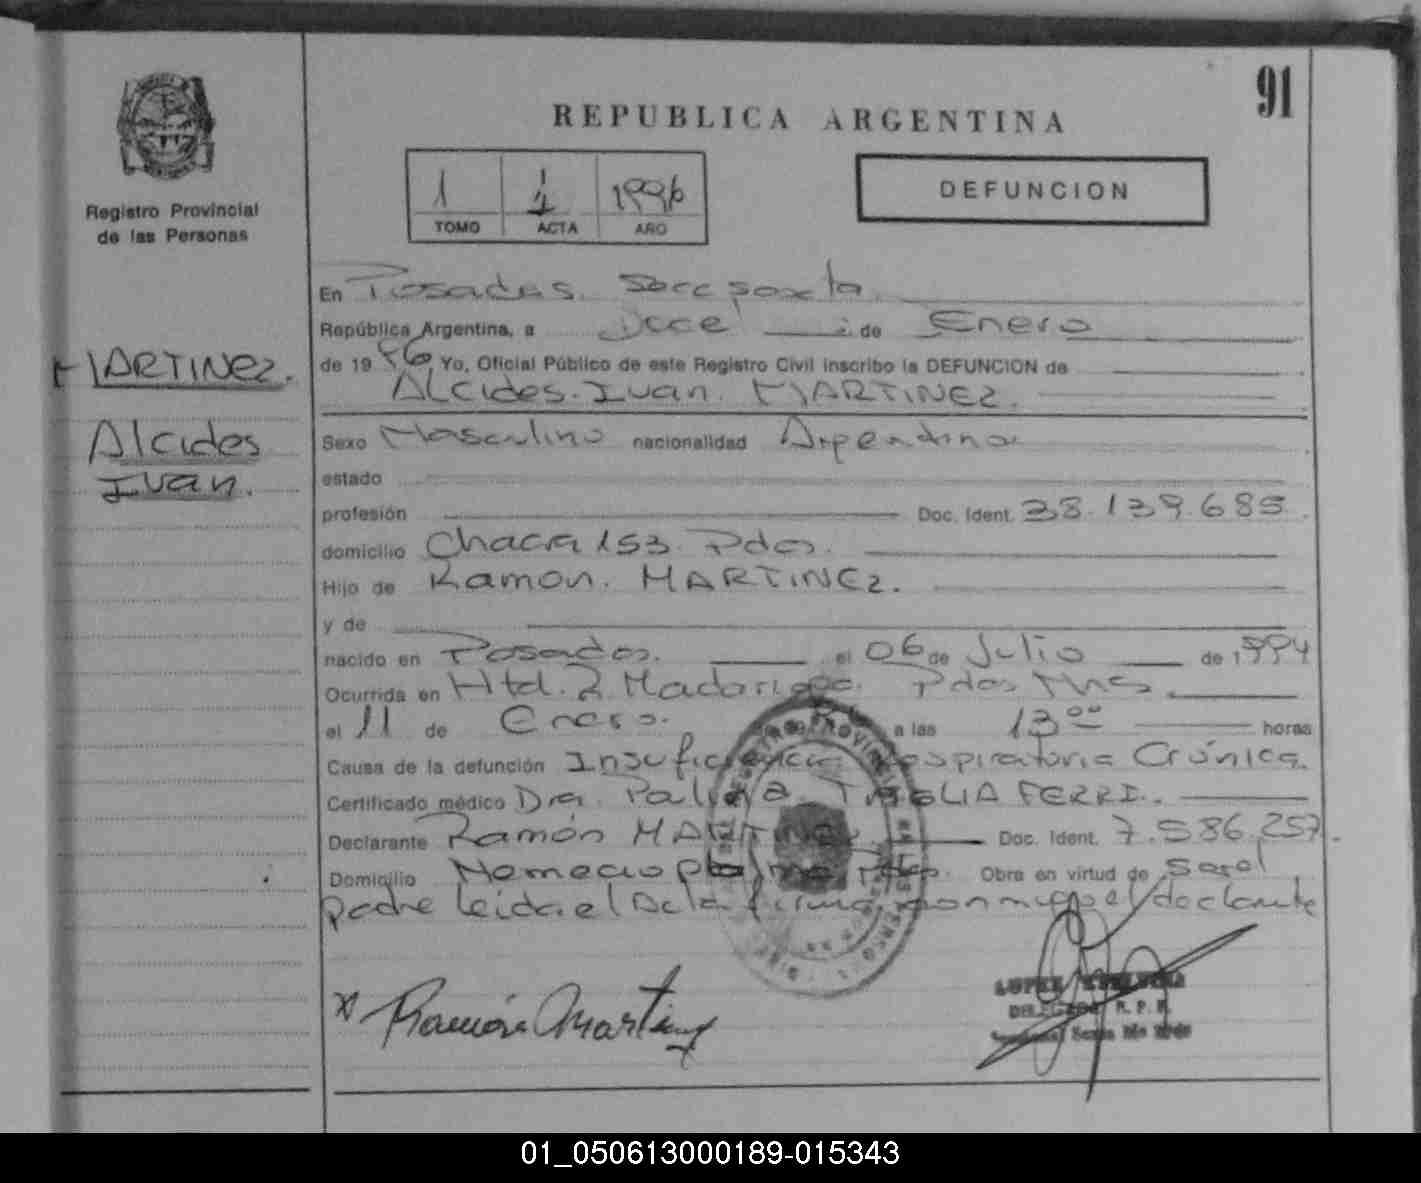 91
REPUBLICA ARGENTINA
Registro Provincial
de las Personas
1 1 1996
TOMO ACTA AÑO
DEFUNCION
MARTINEZ.
Alcides
Ivan.
En Posadas. Secc sexta
República Argentina, a Doce de Enero
de 1996 Yo, Oficial Público de este Registro Civil inscribo la DEFUNCION de
ALcides. Ivan. MARTINEZ.
Sexo Masculino nacionalidad Argentina
estado
profesión Doc. Ident. 38.139.685
domicilio Chacra 153. Pdas.
Hijo de Ramon. MARTINEZ.
y de
nacido en Posadas. el 06 de Julio de 1994
Ocurrida en Htal. R. Madariaga. Pdas Mns.
el 11 de Enero. a las 13 00 horas
Causa de la defunción Insuficiencia Respiratoria Crónica.
Certificado médico Dra. TAGLIA FERRI.
Declarante Ramón MARTINEZ Doc. Ident. 7.586.257.
Domicilio Pdas. Obra en virtud de ser el
padre Leida el Acta firma conmigo el declarante
x Ramón Martinez
DELEGADA R. P. P.
01_050613000189-015343